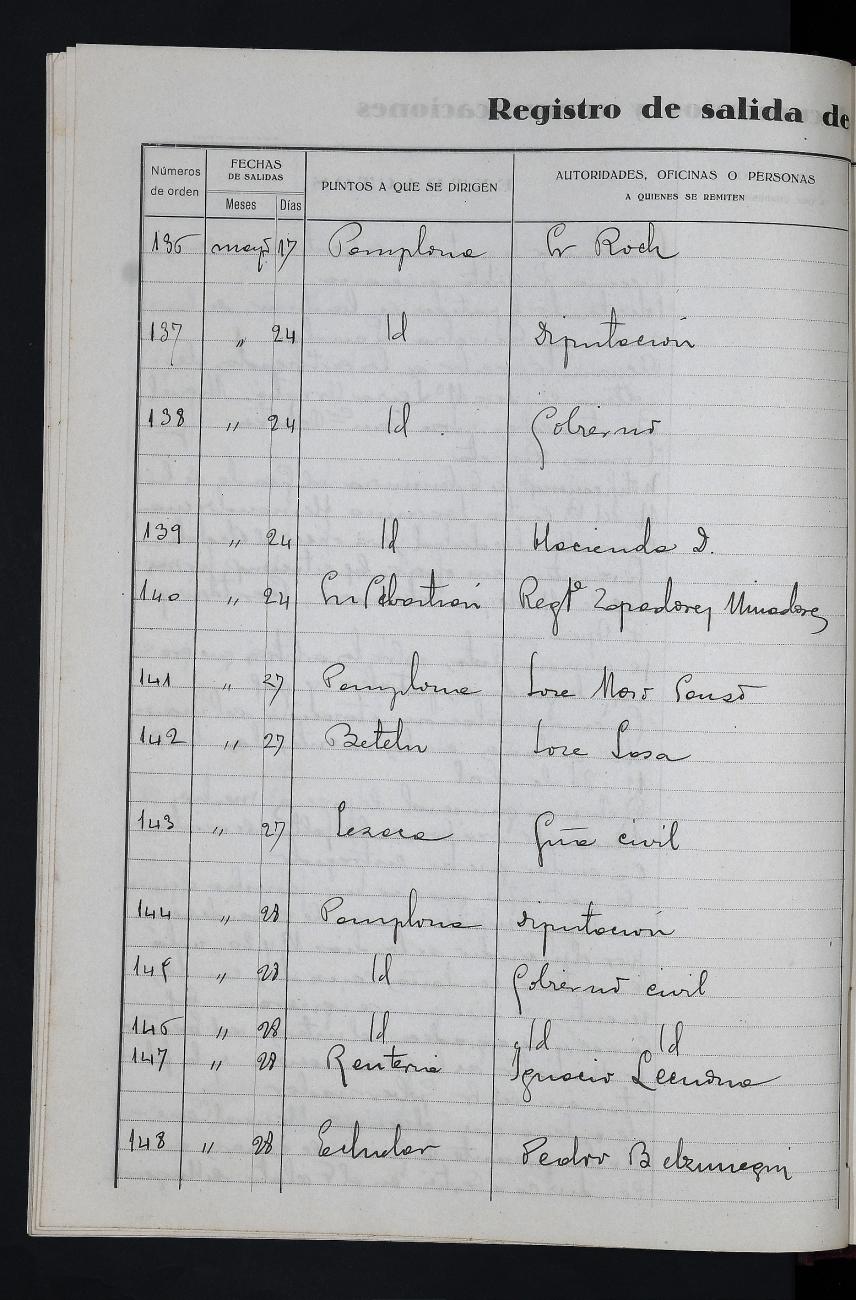 Registro de salida de
Números de orden
FECHAS DE SALIDAS
Meses Días
PUNTOS A QUE SE DIRIGEN
AUTORIDADES, OFICINAS O PERSONAS
A QUIENES SE REMITEN
136 mayo 17 Pamplona Sr Roch
137 " 24 Id Diputación
138 " 24 Id Gobierno
139 " 24 Id Hacienda D.
140 " 24 Sn Sebastián Regto Zapadores Minadores
141 " 27 Pamplona Jose
142 " 27 Betelu Jose Sasa
143 " 27 Lesaca Gria civil
144 " 28 Pamplona Diputación
145 " 28 Id Gobierno civil
146 " 28 Id Id Id
147 " 28 Renteria Ignacio Lecuona
148 " 28 Echalar Pedro Belzunegui